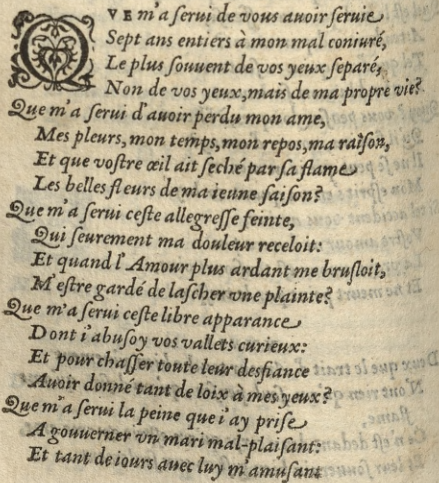 QVE m'a serui de vous auoir seruie
Sept ans entiers à mon mal coniuré,
Le plus souuent de vos yeux separé,
Non de vos yeux, mais de ma propre vie?
Que m'a serui d'auoir perdu mon ame,
Mes pleurs, mon temps, mon repos, ma raison,
Et que vostre œil ait seché par sa flame
Les belles fleurs de ma ieune saison?
Que m'a serui ceste allegresse feinte,
Qui seurement ma douleur receloit:
Et quand l'Amour plus ardant me brusloit,
M'estre gardé de lascher vne plainte?
Que m'a serui ceste libre apparance
Dont i'abusoy vos vallets curieux:
Et pour chasser toute leur desfiance
Auoir donné tant de loix à mes yeux?
Que m'a serui la peine que i'ay prise
A gouuerner vn mari mal-plaisant:
Et tant de iours auec luy m'amusant